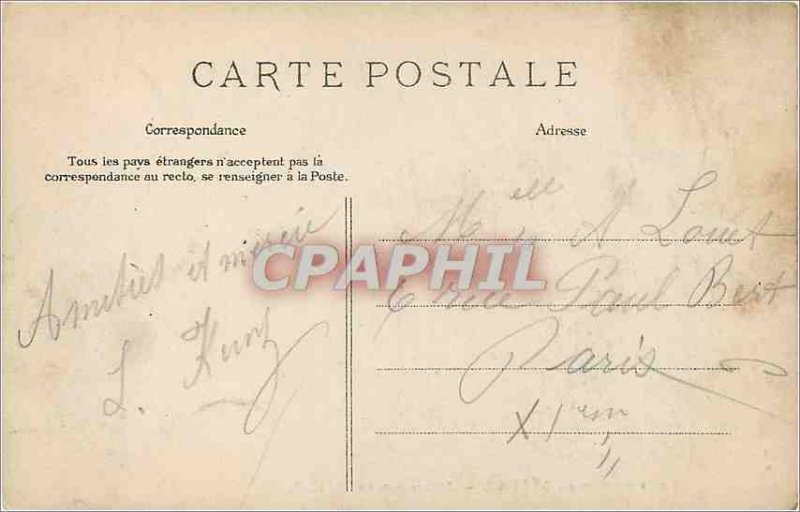 CARTE POSTALE
Correspondance
Adresse
Tous les pays étrangers n'acceptent pas la
correspondance au recto, se renseigner à la Poste.
Amitiés et merci
L. Kuntz
Melle A Louet
6 rue Paul Bert
Paris
XIem
CPAPHIL